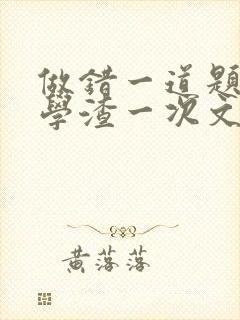 做錯一道題
學渣一次文
黃落落